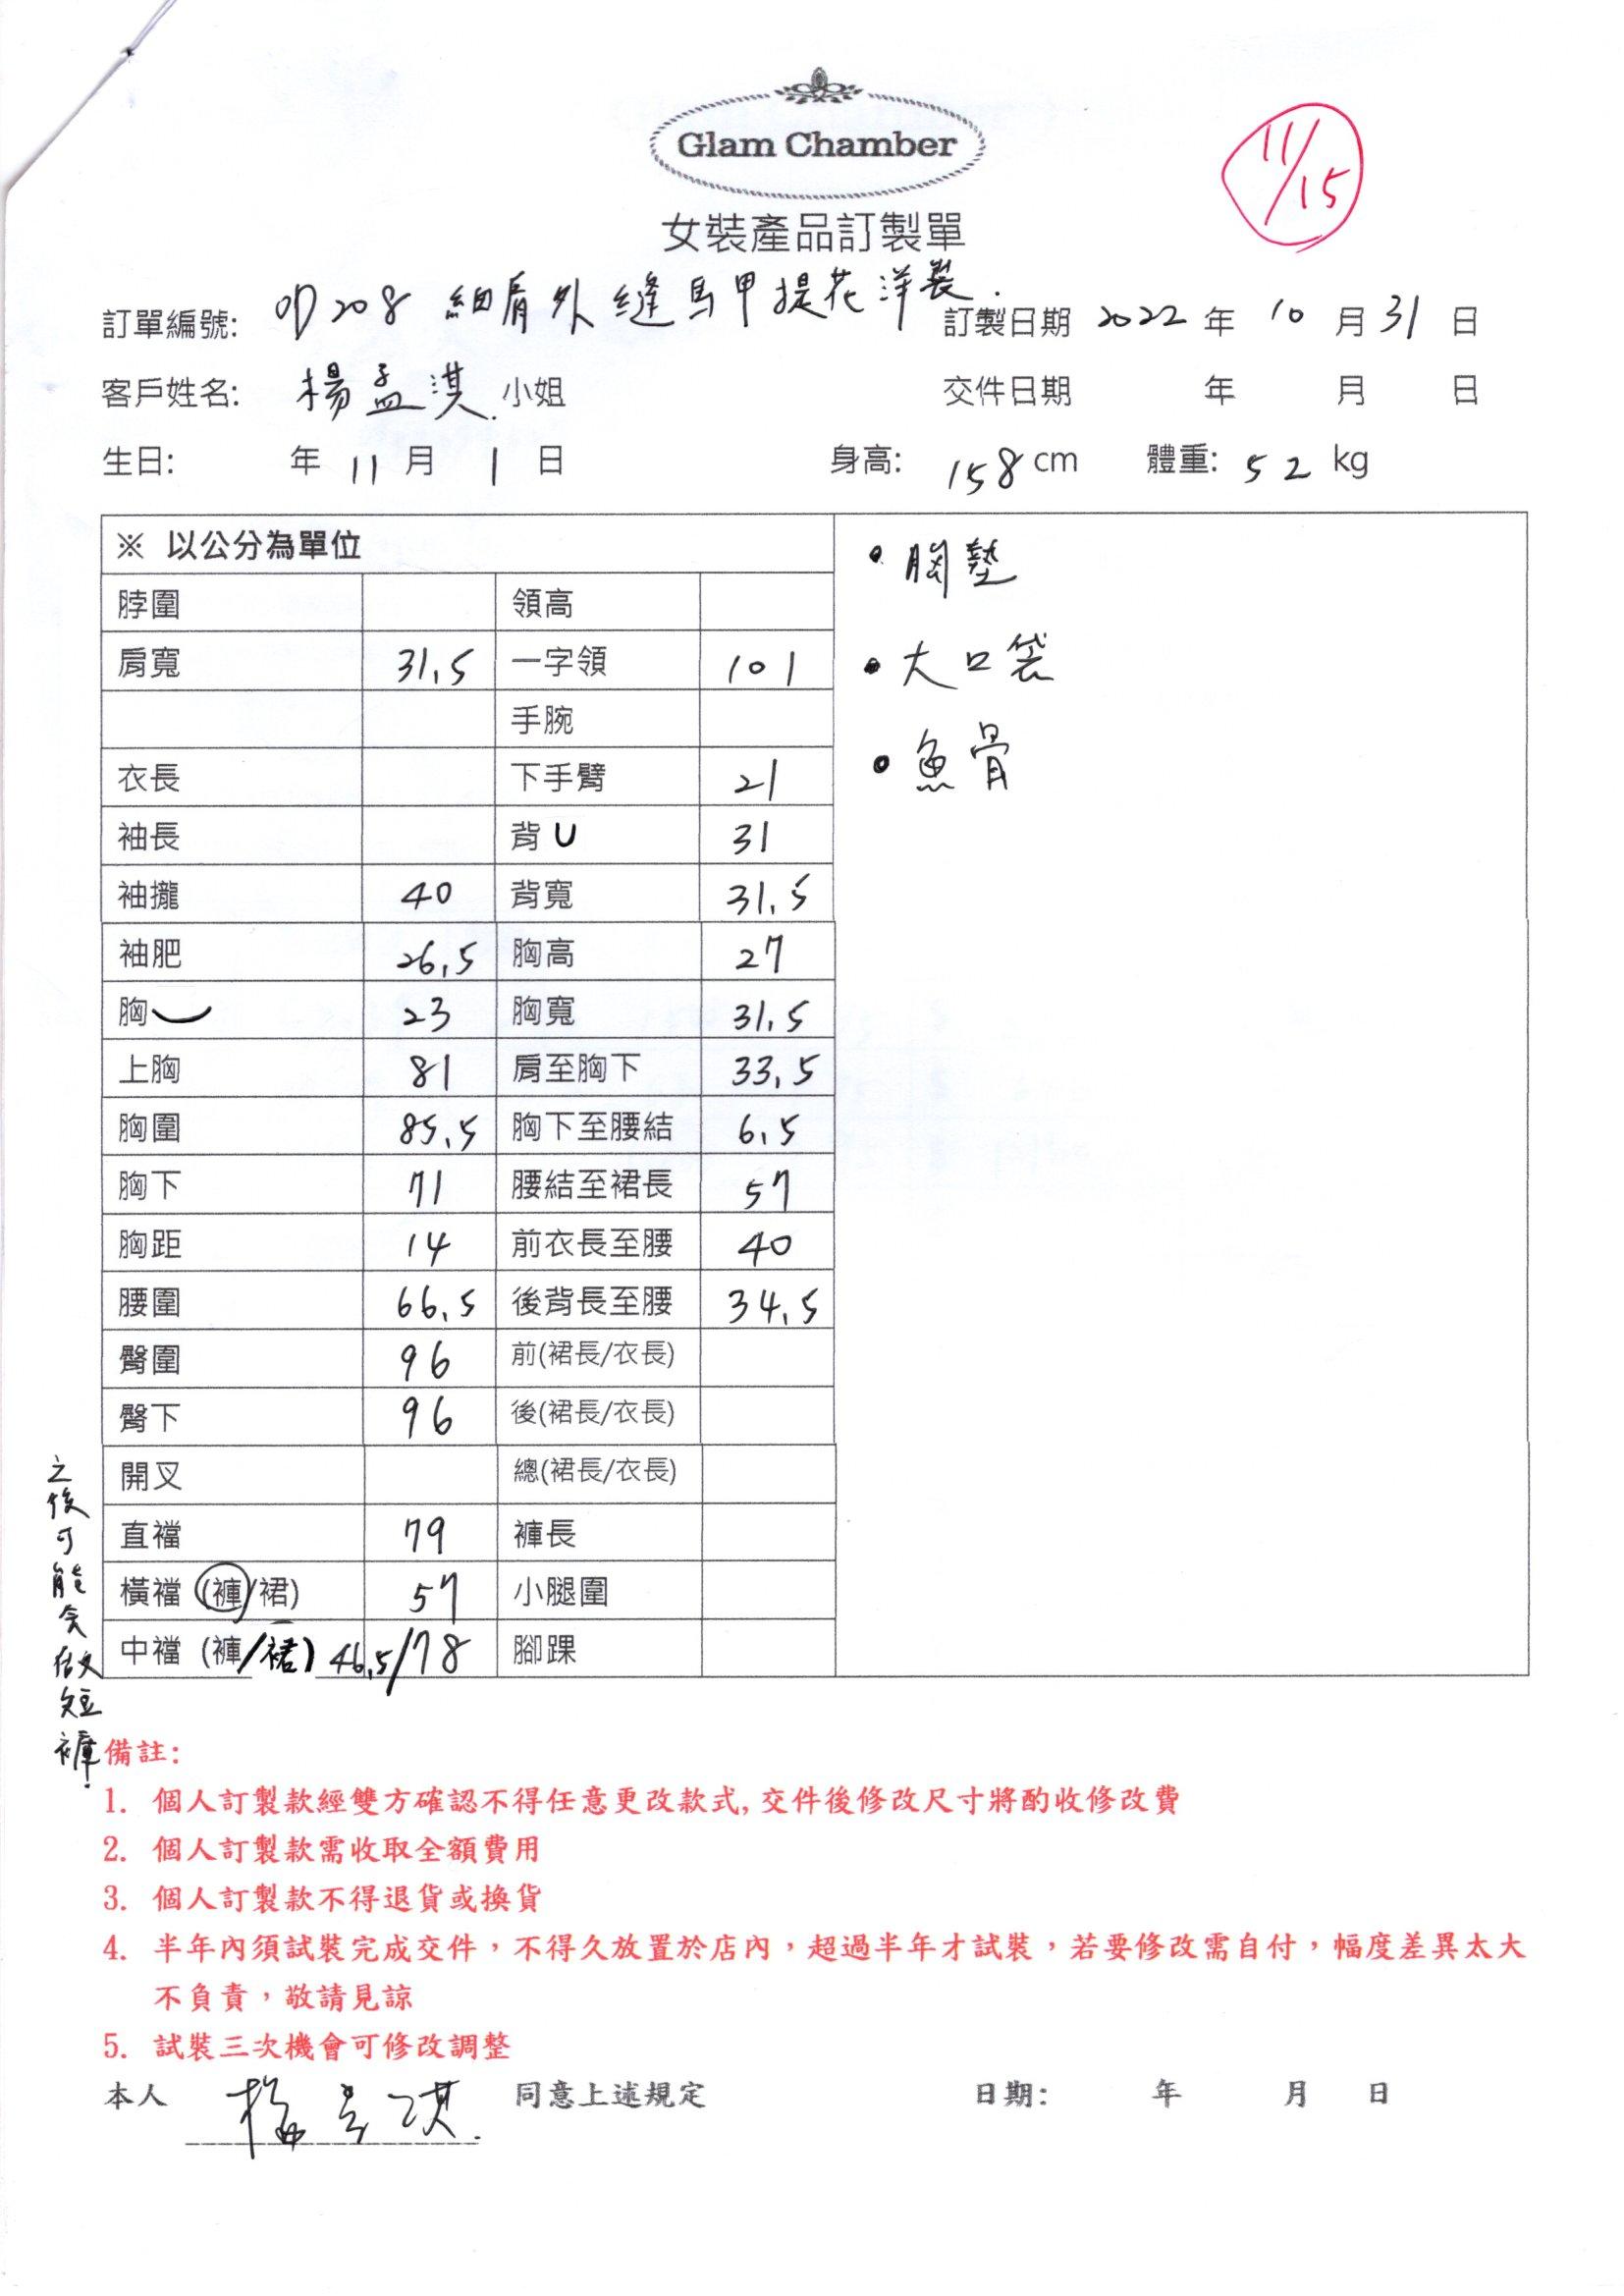 Glam Chamber
11/15
女裝產品訂製單
訂單編號: 208 細肩外縫馬甲提花洋裝. 訂製日期 2022 年 10 月 31 日
客戶姓名: 楊孟淇. 小姐 交件日期 年 月 日
生日: 年 11 月 1 日 身高: 158 cm 體重: 52 kg
※ 以公分為單位
• 胸墊
• 大口袋
• 魚骨
脖圍 領高
肩寬 31.5 一字領 101
手腕
衣長 下手臂 21
袖長 背U 31
袖攏 40 背寬 31.5
袖肥 26.5 胸高 27
胸 23 胸寬 31.5
上胸 81 肩至胸下 33.5
胸圍 85.5 胸下至腰結 6.5
胸下 71 腰結至裙長 57
胸距 14 前衣長至腰 40
腰圍 66.5 後背長至腰 34.5
臀圍 96 前(裙長/衣長)
臀下 96 後(裙長/衣長)
開叉 總(裙長/衣長)
直襠 79 褲長
橫襠 (褲/裙) 57 小腿圍
中襠 (褲/裙) 46.5/78 腳踝
之後可能會做短褲!
備註:
1. 個人訂製款經雙方確認不得任意更改款式, 交件後修改尺寸將酌收修改費
2. 個人訂製款需收取全額費用
3. 個人訂製款不得退貨或換貨
4. 半年內須試裝完成交件，不得久放置於店內，超過半年才試裝，若要修改需自付，幅度差異太大
不負責，敬請見諒
5. 試裝三次機會可修改調整
本人 楊孟淇. 同意上述規定 日期: 年 月 日